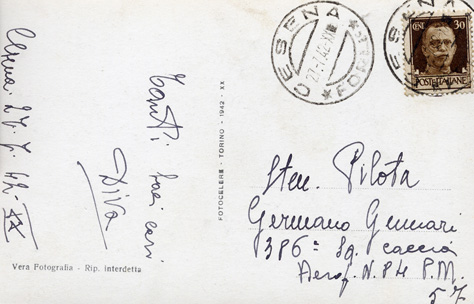 Cesena. 27.7.42-XX
Tanti baci cari
Diva
Vera Fotografia - Rip. interdetta
FOTOCELERE - TORINO - 1942 - XX
CESENA
27.7.42
CESENA
CENT 30
POSTE ITALIANE
Sten. Pilota
Germano Gennari
386ª Sq. caccia
Aerop. N. P4 P.M.
57